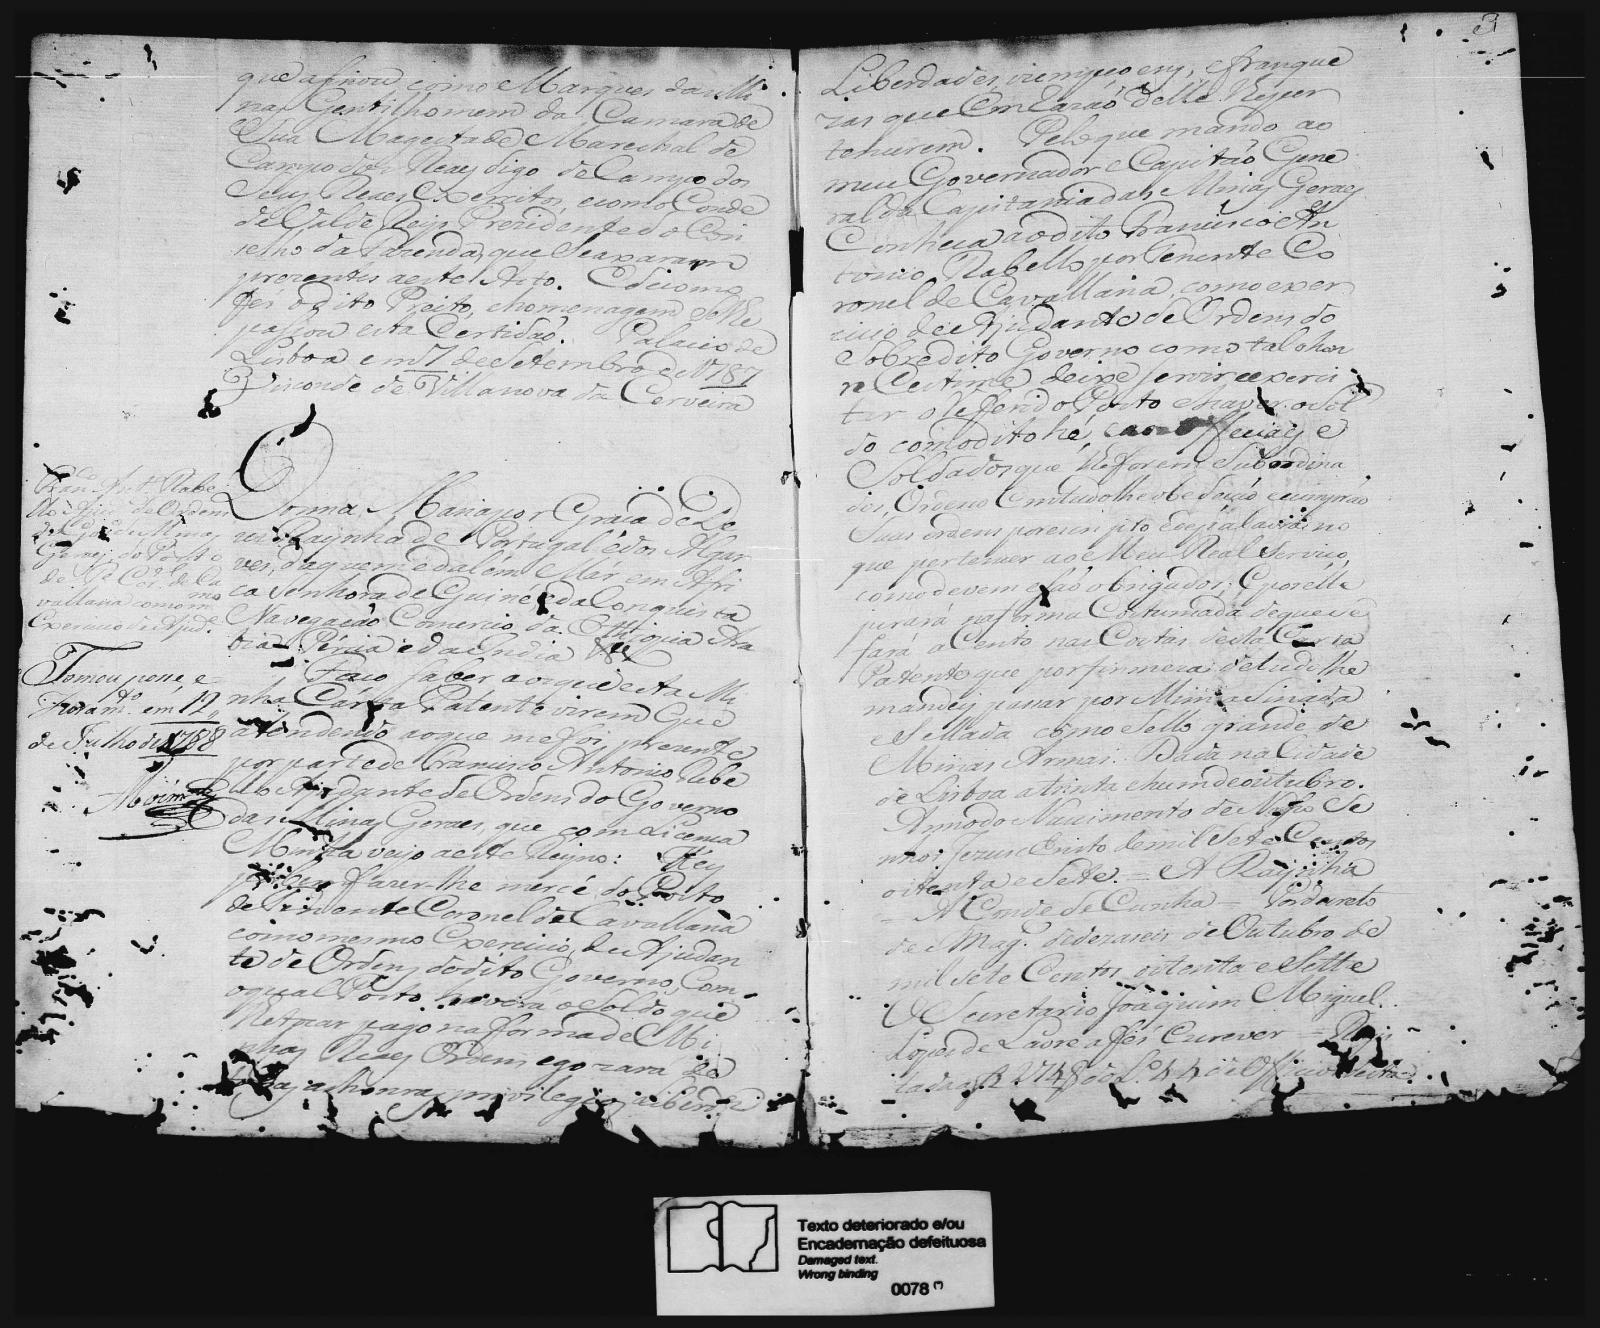 que asinou como Marques das Mi
nas Gentilhomem da Camara de
Sua Magestade Marechal de
Campo dos Reaes digo de Campo dos
Seus Reaes Exercitos, e como Conde
de Val de Reys Prezidente do Con
selho da Fazenda, que se axaram
prezentes a este Acto. E de como
fes o dito Preito, e homenagem se lhe
passou esta Certidaõ. Palacio de
Lisboa em 7 de Setembro de 1787
Visconde de Villanova da Cerveira
Fran.co Ant.o Rabe
llo Ajud.e de Ordens
de Minas
Geraes do Posto
de T.e Cor.el de Ca
vallaria com o m.mo
Exercicio de Ajud.e
Tomou posse, e
Juram.to em 19
de Julho de 1788
Donna Maria por Graça de De
us Raynha de Portugal e dos Algar
ves, daquem e dalém Mar, em Afri
ca Senhora de Guiné e da Conquista
Navegação Comercio da Ethiopia Ara
bia Percia e da India &
Faço saber aos que esta Mi
nha Carta Patente virem Que
atendendo ao que me foi prezente
por parte de Francisco Antonio Rebe
llo Ajudante de Ordens do Governo
das Minas Geraes, que com Licença
Minha veyo a este Reyno: Hey
por bem fazer-lhe mercé do Posto
de Tenente Coronel de Cavallaria
com o mesmo Exercicio, de Ajudan
te de Ordens do dito Governo, Com
o qual Posto haverá o Soldo que
lhe tocar pago na forma de Mi
nhas Reaes Ordens e gozará de
todas as honras, privilegios, liberda
3
Liberdades, izençoens, e franque
zas que em razaõ delle lhe per
tencerem. Pelo que mando ao
meu Governador e Capitaõ Gene
ral da Capitania das Minas Geraes
Conheça ao dito Francisco An
tonio Rabello por Tenente Co
ronel de Cavallaria, com o exer
cicio de Ajudante de Ordens do
Sobredito Governo e como tal o hon
re e estime deixe servir e exerci
tar o referido Posto e haver o Sol
do como dito hé, e aos Officiaes e
Soldados que lhe forem subordina
dos, Ordeno que em tudo lhe obedeçaõ e cumpraõ
Suas ordens por escripto e de palavra no
que pertencer ao Meu Real Serviço,
como devem e saõ obrigados; E por elle
jurará na forma Costumada de que se
fará acento nas Costas desta Carta
Patente, que por firmeza de tudo lhe
mandey passar por Mim asinada
e Sellada com o Sello grande de
Minhas Armas. Dada na Cidade
de Lisboa a trinta e hum de outubro.
Anno do Nascimento de Nosso Se
nhor Jezus Christo de mil Sete Centos
oitenta e Sete. = A Raynha
= A Conde de Cunha = Por decreto
de S. Mag.e de dezaseis de Outubro de
mil Sete Centos oitenta e Sette
O Secretario Joaquim Miguel
Lopes de Lavre a fés escrever = Regis
tada a f. 274 do L.o 44 de Officios desta
Texto deteriorado e/ou
Encadernação defeituosa
Damaged text.
Wrong binding
0078